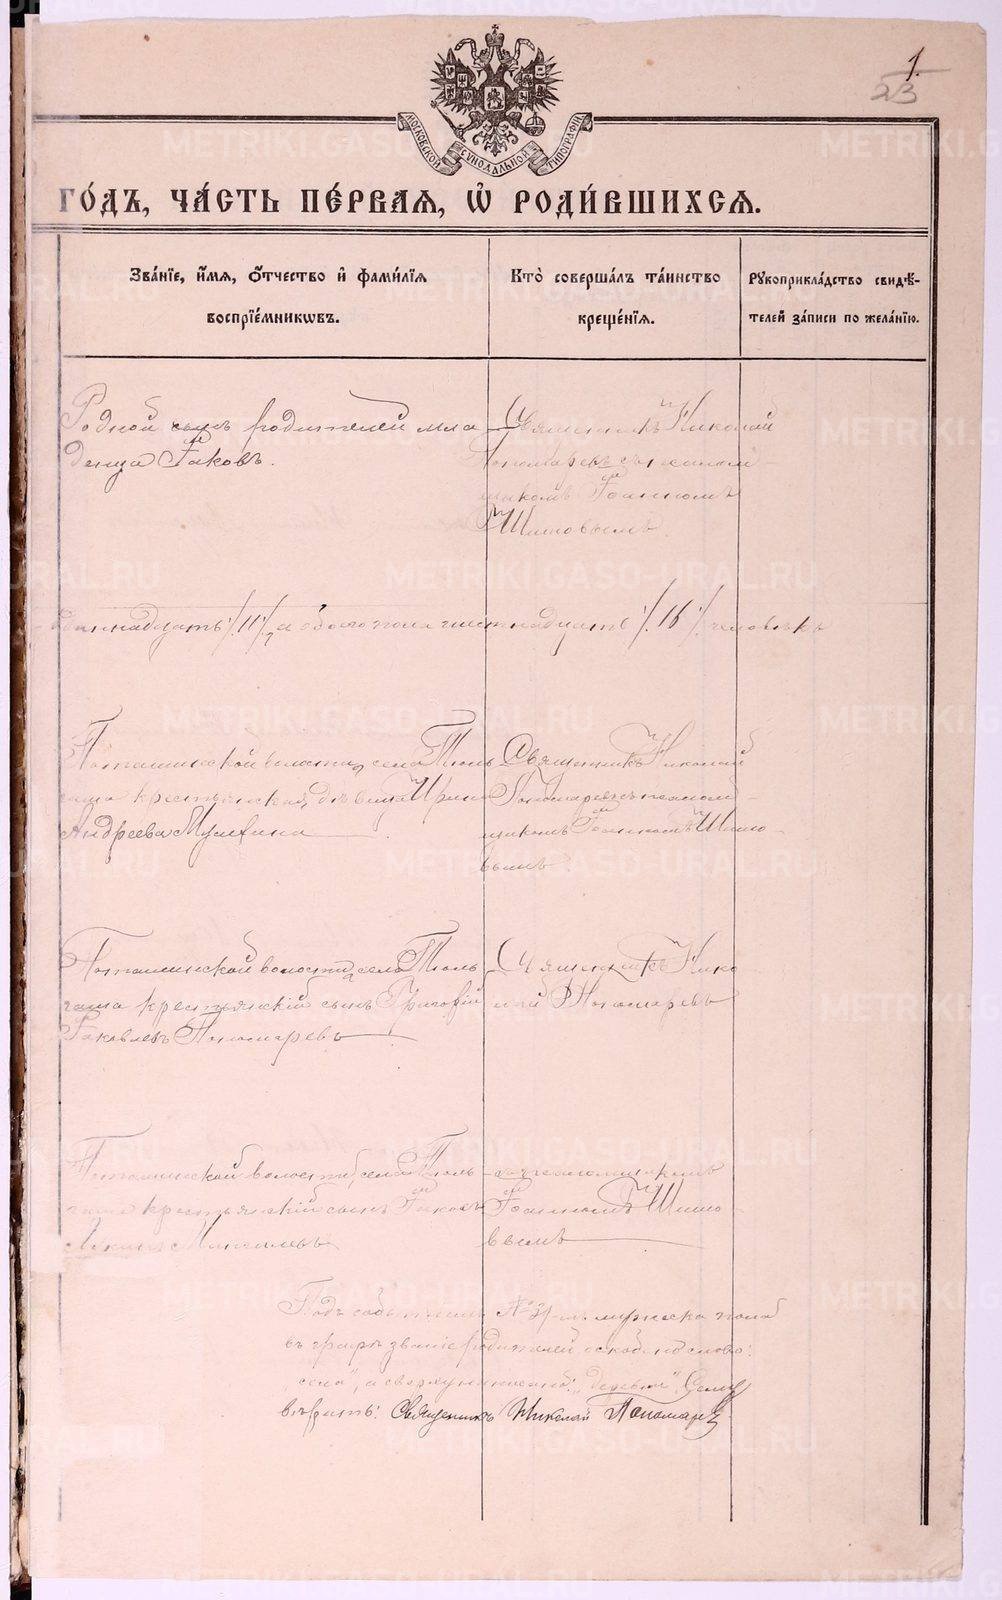 1.
23
МОСКОВСКОЙ СѴНОДАЛЬНОЙ ТИПОГРАФІИ
ГО́ДЪ, ЧА́СТЬ ПЕ́РВАЯ, Ѡ҆ РОДИ́ВШИХСЯ.
Зва́нїе, и҆́мя, ѻ҆́тчество и҆ фами́лїя
воспрїе́мникѡвъ.
Кто̀ соверша́лъ та́инство
креще́нїя.
Рꙋкоприкла́дство свидѣ́-
телей за́писи по жела́нїю.
Родной сынъ родителей мла
денца Іаковъ.
Священникъ Николай
Пономаревъ съ псалом-
щикомъ Іоанномъ
Шишовымъ.
одиннадцать /. 11 /., а обоего пола шестнадцать /. 16 /. человѣкъ
Поташинской волости, села Тюль
гаша крестьянская дѣвица Ирина
Андреева
Священникъ Николай
Пономаревъ съ псалом-
щикомъ Іоанномъ Шишо-
вымъ
Поташинской волости села Тюль
гаша крестьянскій сынъ Григорій
Іаковлевъ Пономаревъ
Священникъ Нико
лай Пономаревъ
Поташинской волости, села Тюль-
гаша крестьянскій сынъ Іаковъ
съ псаломщикомъ
Іоанномъ Шишо-
вымъ
Подъ событіемъ № 31-мъ мужеска пола
въ графѣ званіе родителей оскоблено слово:
"села", а сверху написано: "деревни". Сему
вѣрить: Священникъ Николай Пономаревъ
METRIKI.GASO-URAL.RU